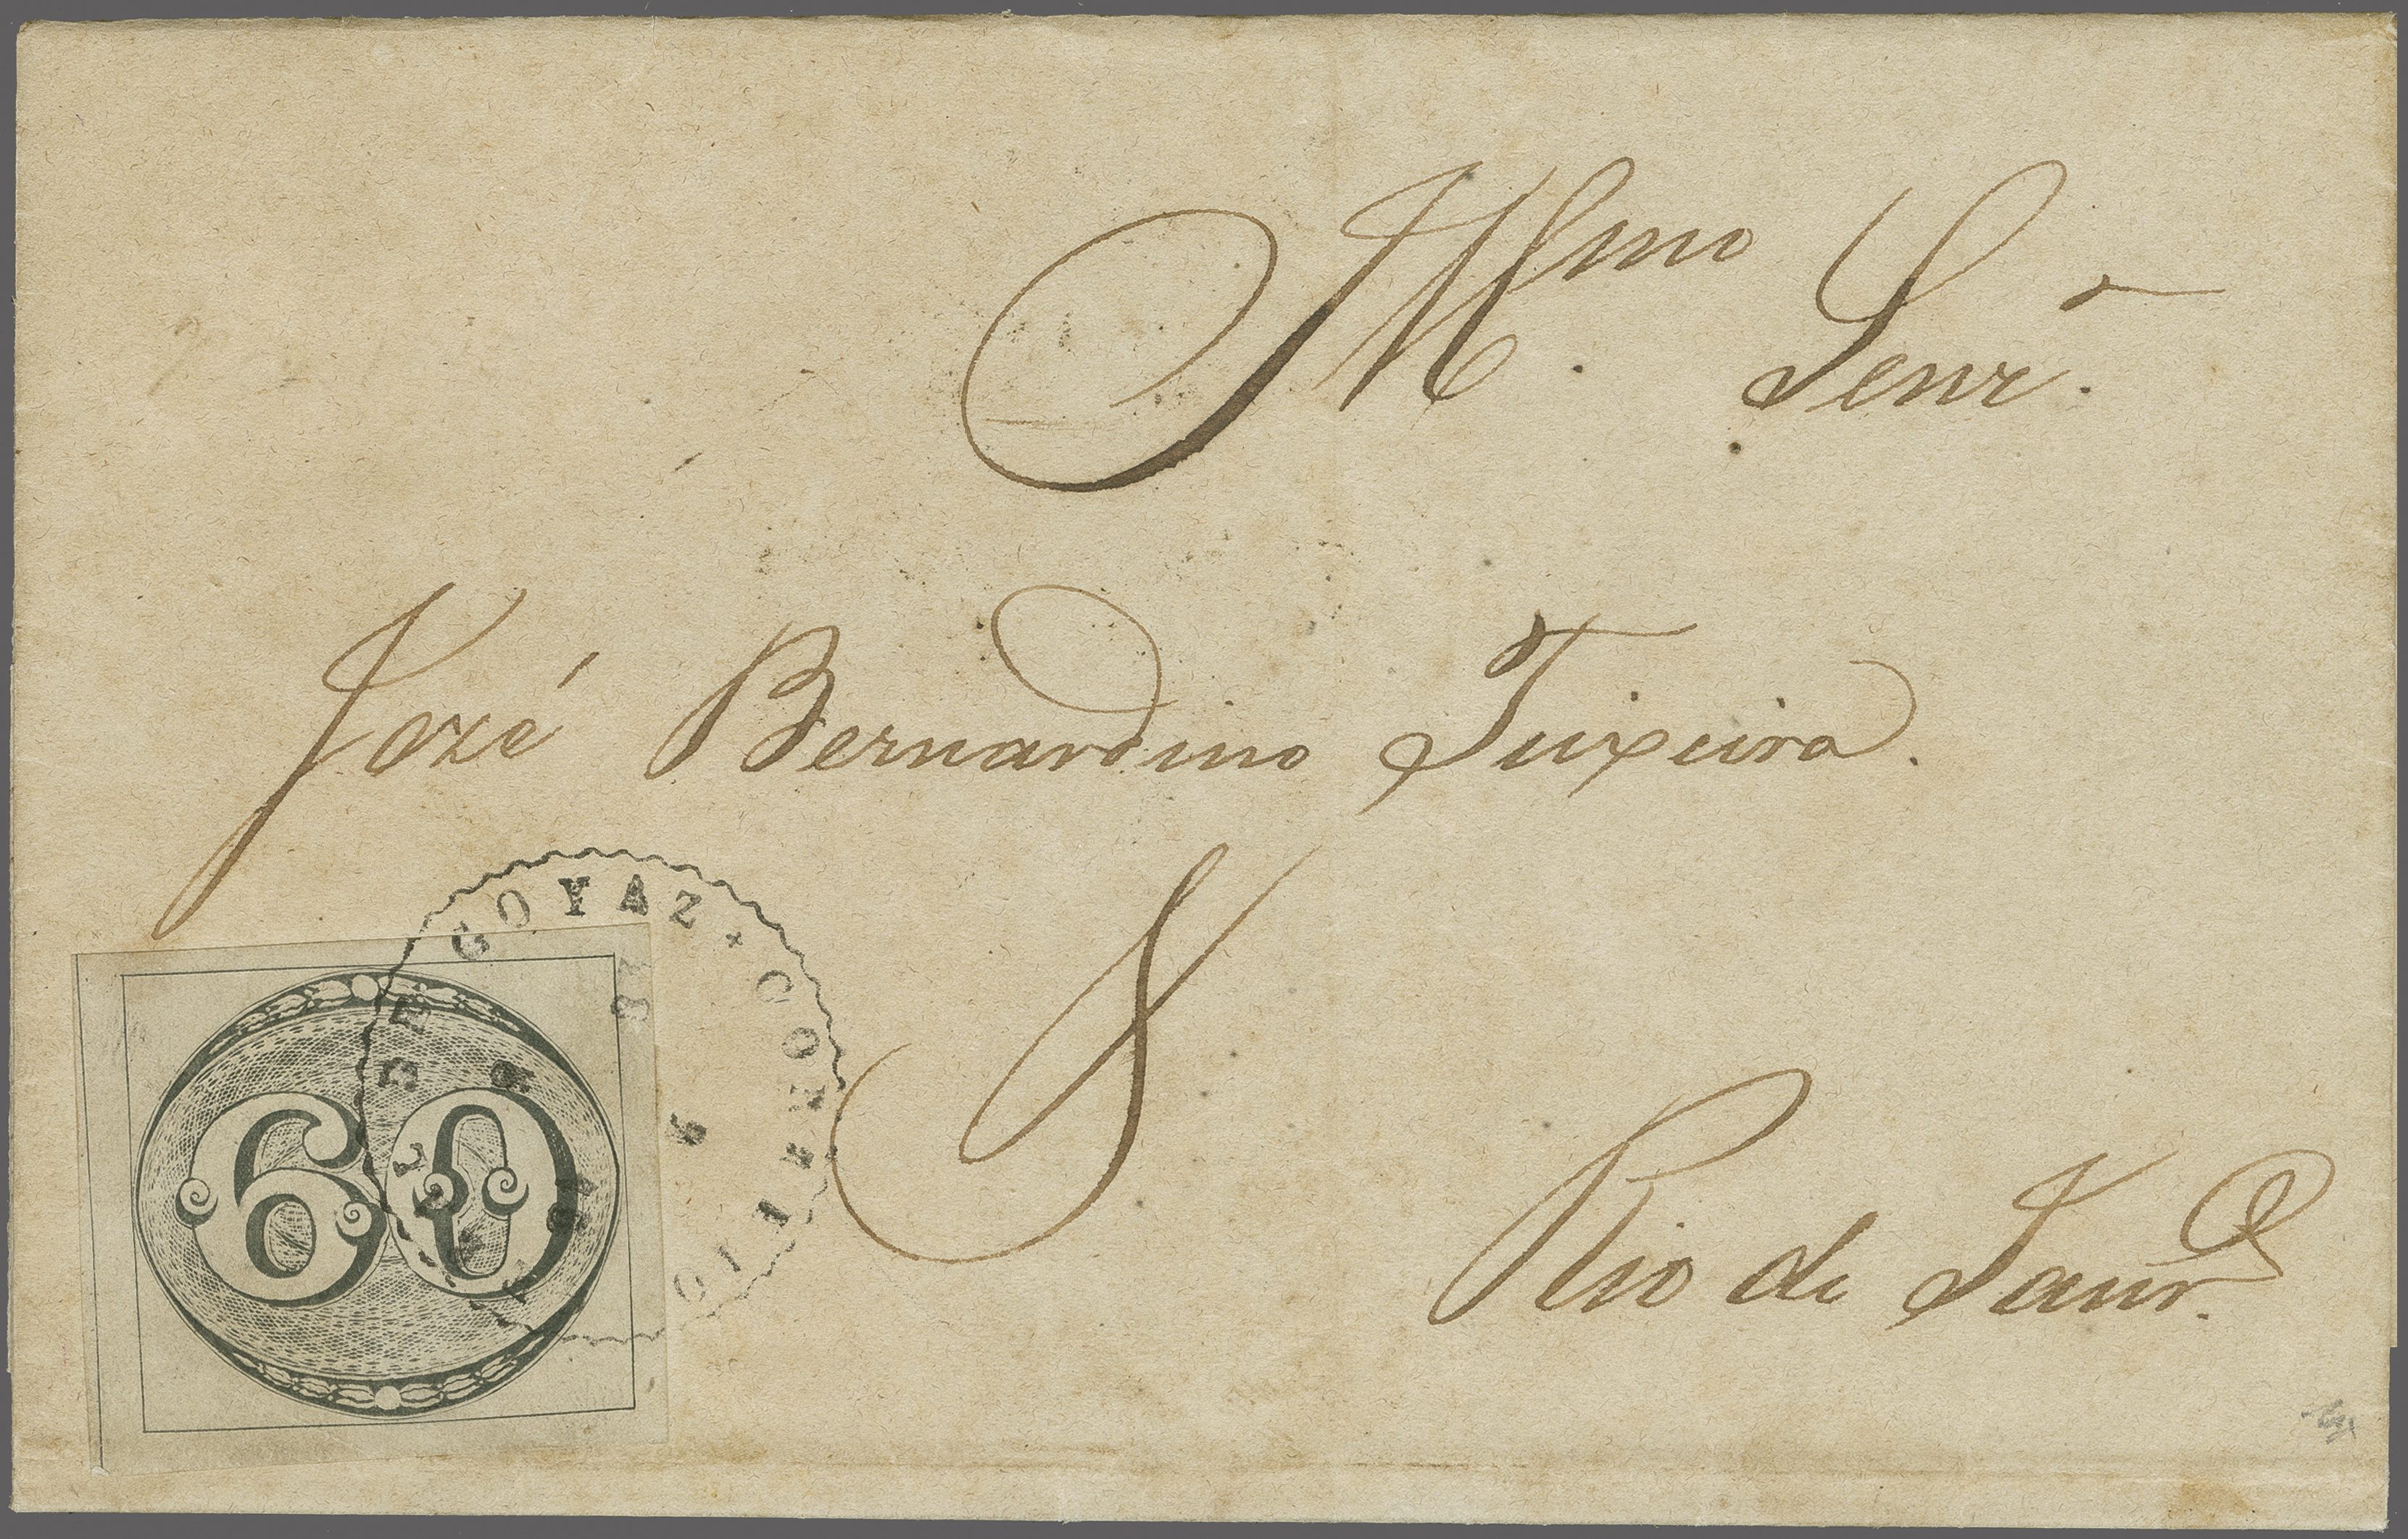 Illmo. Senr.
Jozé Bernardino Teixeira.
S
Rio de Janr.o
GOYAZ
60